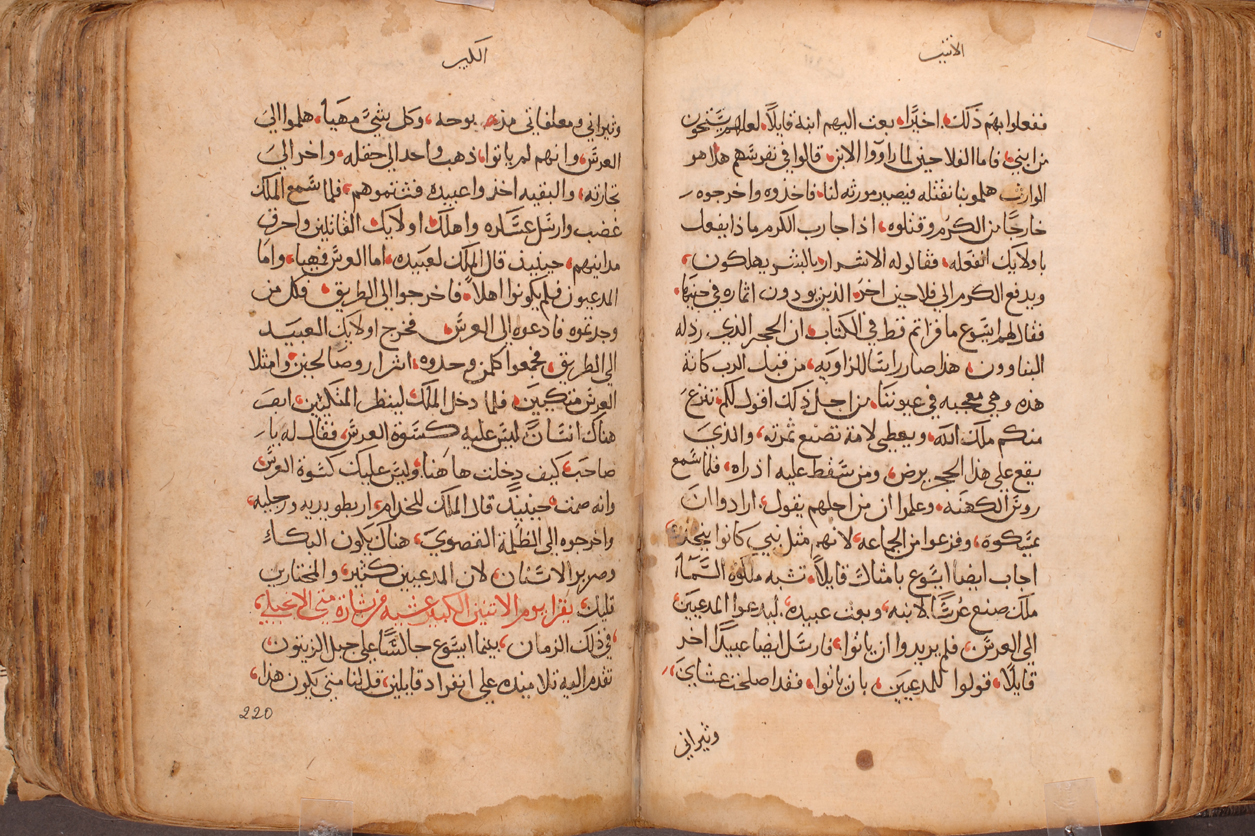 الاثنين
ففعلوا بهم ذلك، اخيرًا، بعث اليهم ابنه قايلاً، لعلهم يستحيون
من ابني، فاما الفلاحين لما راووا الابن، قالوا في نفوسهم هذا هو
الوارث هلموا بنا نقتله فيصير مورثه لنا، فاخذوه واخرجوه
خارجًا من الكرم وقتلوه، اذا جا رب الكرم ماذا يفعل
باولايك الفعله، فقالوا له الاشرار بالشر يهلكون،
ويدفع الكرم الى فلاحين اخر، الذين يودون اثماره في حينها،
فقال لهم ايسوع ما قراتم قط في الكتاب، ان الحجر الذي رذله
البناوون، هذا صار راسًا للزاويه، من قبل الرب كانة
هذه وهي معجبه في عيوننا، من اجل ذلك اقول لكم، تنزع
منكم ملك الله، ويعطى لامة تصنع ثمرته، والذي
يقع على هذا الحجر يرض، ومن سقط عليه اذراه، فلما سمع
روس الكهنه، وعلموا ان من اجلهم يقول، ارادوا ان
يمسكوه، وفزعوا من الجماعه، لانهم مثل نبي كانوا
اجاب ايضا ايسوع بامثال قايلاً، تشبه ملكوة السما
ملك صنع عُرسًا لابنه، وبعث عبيده، ليدعوا المدعين
الى العرس، فلم يريدوا ان ياتوا، فارسل ايضا عبيدًا اخر
قايلاً، قولوا للمدعين، بان ياتوا، فقد اصلحت عشاي،
وثيراني
الكبير
وثيراني ومعلفاتي مذبوحه، وكل شيً مهيا، هلموا الى
العرس، وانهم لم ياتوا، ذهب واحد الى حقله، واخر الى
تجارته، والبقيه اخذوا عبيده، فشتموهم، فلما سمع الملك
غضب وارسل عساكره واهلك، اولايك القاتلين واحرق
مداينهم، حينيذ قال الملك لعبيده، اما العرس فمهيا، واما
المدعيون فلم يكونوا اهلا، فاخرجوا الى الطريق، فكل من
وجدتموه فادعوه الى العرس، فخرج اولايك العبيد
الى الطريق، فجمعوا كلمن وجدوه، اشرار وصالحين، وامتلا
العرس متكيين، فلما دخل الملك، لينظر المتكيين، ابصر
هناك انسانً ليس عليه كسوة العرس، فقال له يا
صاحب، كيف دخلت هاهنا، وليس عليك كسوة العرس،
وانه صمت، حينيذً قال الملك للخدام، اربطوا يديه ورجليه،
واخرجوه الى الظلمة القصوى، هناك يكون البكاء
وصرير الاسنان، لان المدعيين كثير، والمختارين
قليل، يقرا يوم الاثنين الكبير عشيه من بشارة متى الانجيلي،
في ذلك الزمان، بينما ايسوع جالسًا على جبل الزيتون
تقدم اليه تلاميذه على انفراد قايلين، قل لنا متى يكون هذا،
220